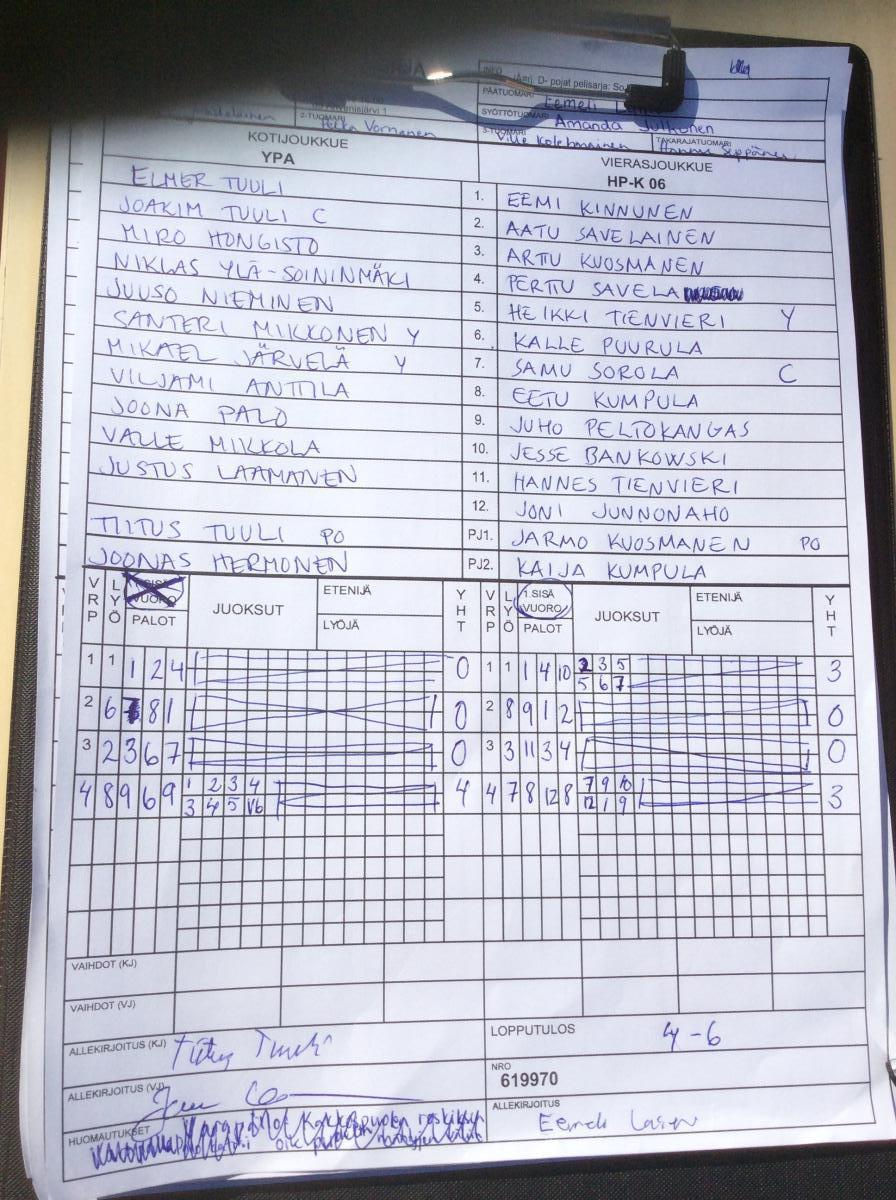 INFO
D- pojat pelisarja: So
PÄÄTUOMARI Eemeli
2-TUOMARI Vornanen
SYÖTTÖTUOMARI Amanda Julkonen
3-TUOMARI Ville Kolehmainen TAKARAJATUOMARI Seppänen
KOTIJOUKKUE VIERASJOUKKUE
YPA HP-K 06
ELMER TUULI 1. EEMI KINNUNEN
JOAKIM TUULI C 2. AATU SAVELAINEN
MIRO HONGISTO 3. ARTTU KUOSMANEN
NIKLAS YLÄ-SOININMÄKI 4. PERTTU SAVELA
JUUSO NIEMINEN 5. HEIKKI TIENVIERI Y
SANTERI MIKKONEN Y 6. KALLE PUURULA
MIKAEL JÄRVELÄ Y 7. SAMU SOROLA C
VILJAMI ANTTILA 8. EETU KUMPULA
JOONA PALO 9. JUHO PELTOKANGAS
VALLE MIKKOLA 10. JESSE BANKOWSKI
JUSTUS LAAMANEN 11. HANNES TIENVIERI
12. JONI JUNNONAHO
TIITUS TUULI PO PJ1. JARMO KUOSMANEN PO
JOONAS HERMONEN PJ2. KAIJA KUMPULA
VRP LYÖ VUORO PALOT JUOKSUT ETENIJÄ LYÖJÄ YHT VRP LYÖ 1.SISÄ VUORO PALOT JUOKSUT ETENIJÄ LYÖJÄ YHT
1 1 1 2 4 0 1 1 1 4 10 2 3 5 3
5 6 7
2 6 7 8 1 0 2 8 9 1 2 0
3 2 3 6 7 0 3 3 11 3 4 0
4 8 9 6 9 1 2 3 4 4 4 7 8 12 8 7 9 10 3
3 4 5 V6 12 1 9
VAIHDOT (KJ)
VAIHDOT (VJ)
ALLEKIRJOITUS (KJ) Tiitus Tuuli LOPPUTULOS 4-6
ALLEKIRJOITUS (VJ) NRO
619970
HUOMAUTUKSET ALLEKIRJOITUS Eemeli